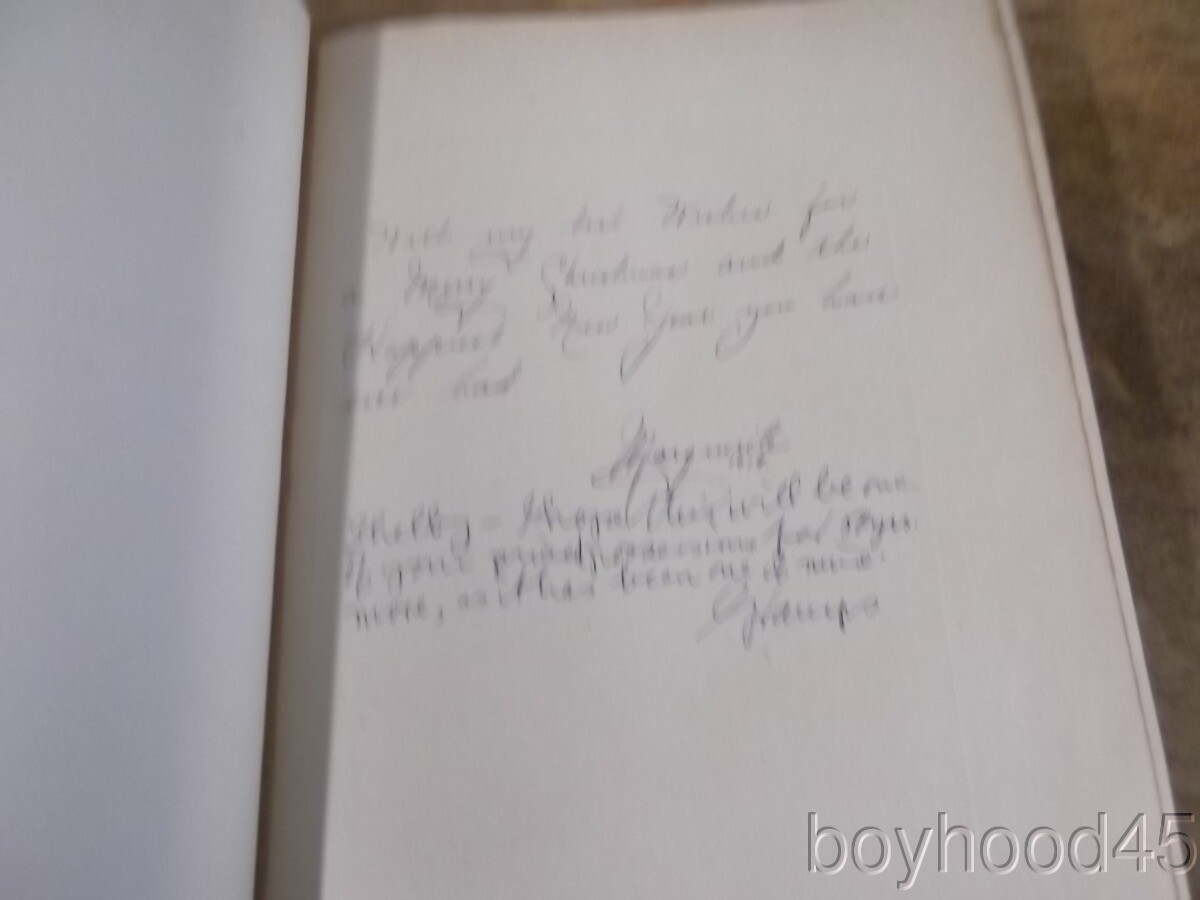 With my best Wishes for
a Merry Christmas and the
Happiest New Year you have
ever had
Marguerite
Shelby – I hope this will be one
of your prized possessions for yrs.
more, as it has been one of mine.
Gramps
boyhood45